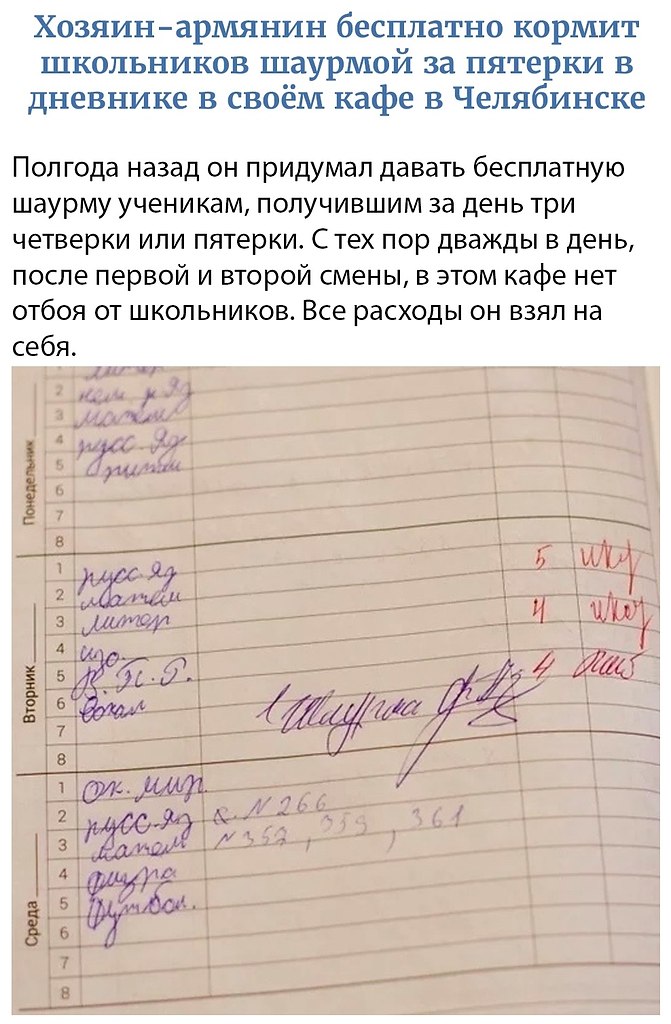 Хозяин-армянин бесплатно кормит
школьников шаурмой за пятерки в
дневнике в своём кафе в Челябинске
Полгода назад он придумал давать бесплатную
шаурму ученикам, получившим за день три
четверки или пятерки. С тех пор дважды в день,
после первой и второй смены, в этом кафе нет
отбоя от школьников. Все расходы он взял на
себя.
Понедельник
2
3 матем
4 русс. яз
5
6
7
8
Вторник
1 русс. яз 5
2 матем
3 литер 4
4 изо.
5 4
6 вокал 1 Шаурма
7
8
Среда
1 ок. мир.
2 русс. яз №266
3 матем №357, 359, 361
4 физра
5 футбол.
6
7
8